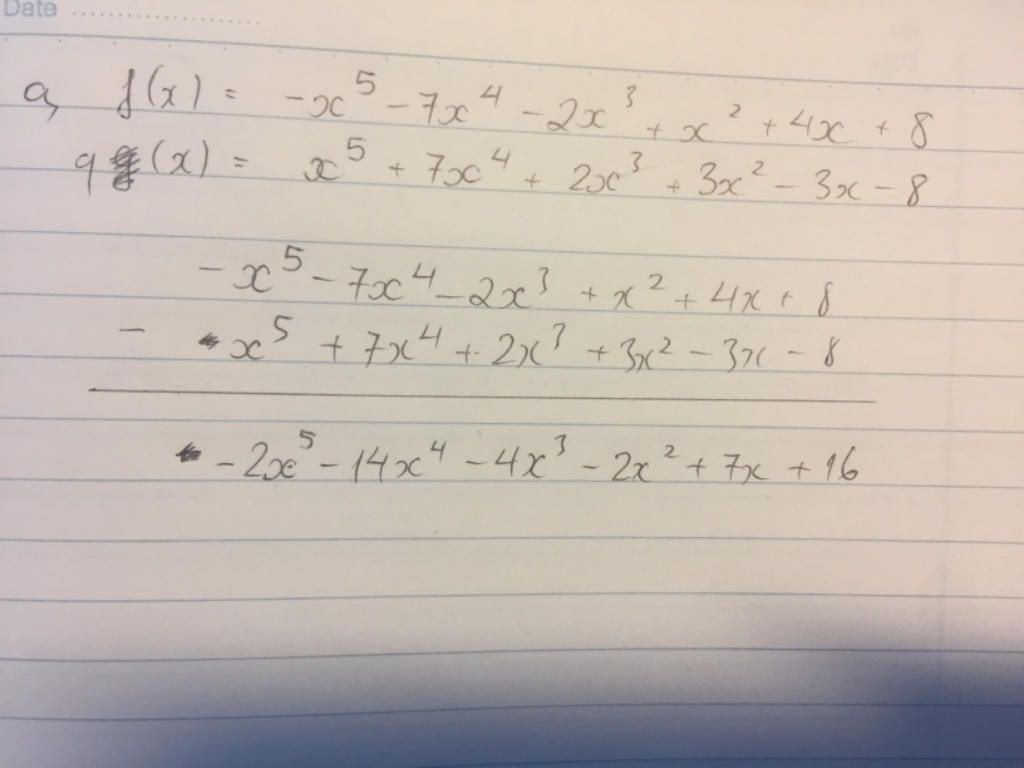 Date ..............................
a, f(x) = -x⁵ - 7x⁴ - 2x³ + x² + 4x + 8
g(x) = x⁵ + 7x⁴ + 2x³ + 3x² - 3x - 8
-x⁵ - 7x⁴ - 2x³ + x² + 4x + 8
- x⁵ + 7x⁴ + 2x³ + 3x² - 3x - 8
-2x⁵ - 14x⁴ - 4x³ - 2x² + 7x + 16